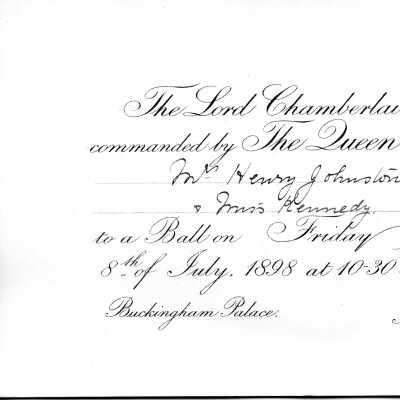 The Lord Chamberlai
commanded by The Queen
Mr Henry Johnston
& Miss Kennedy.
to a Ball on Friday
8th of July, 1898 at 10-30
Buckingham Palace.